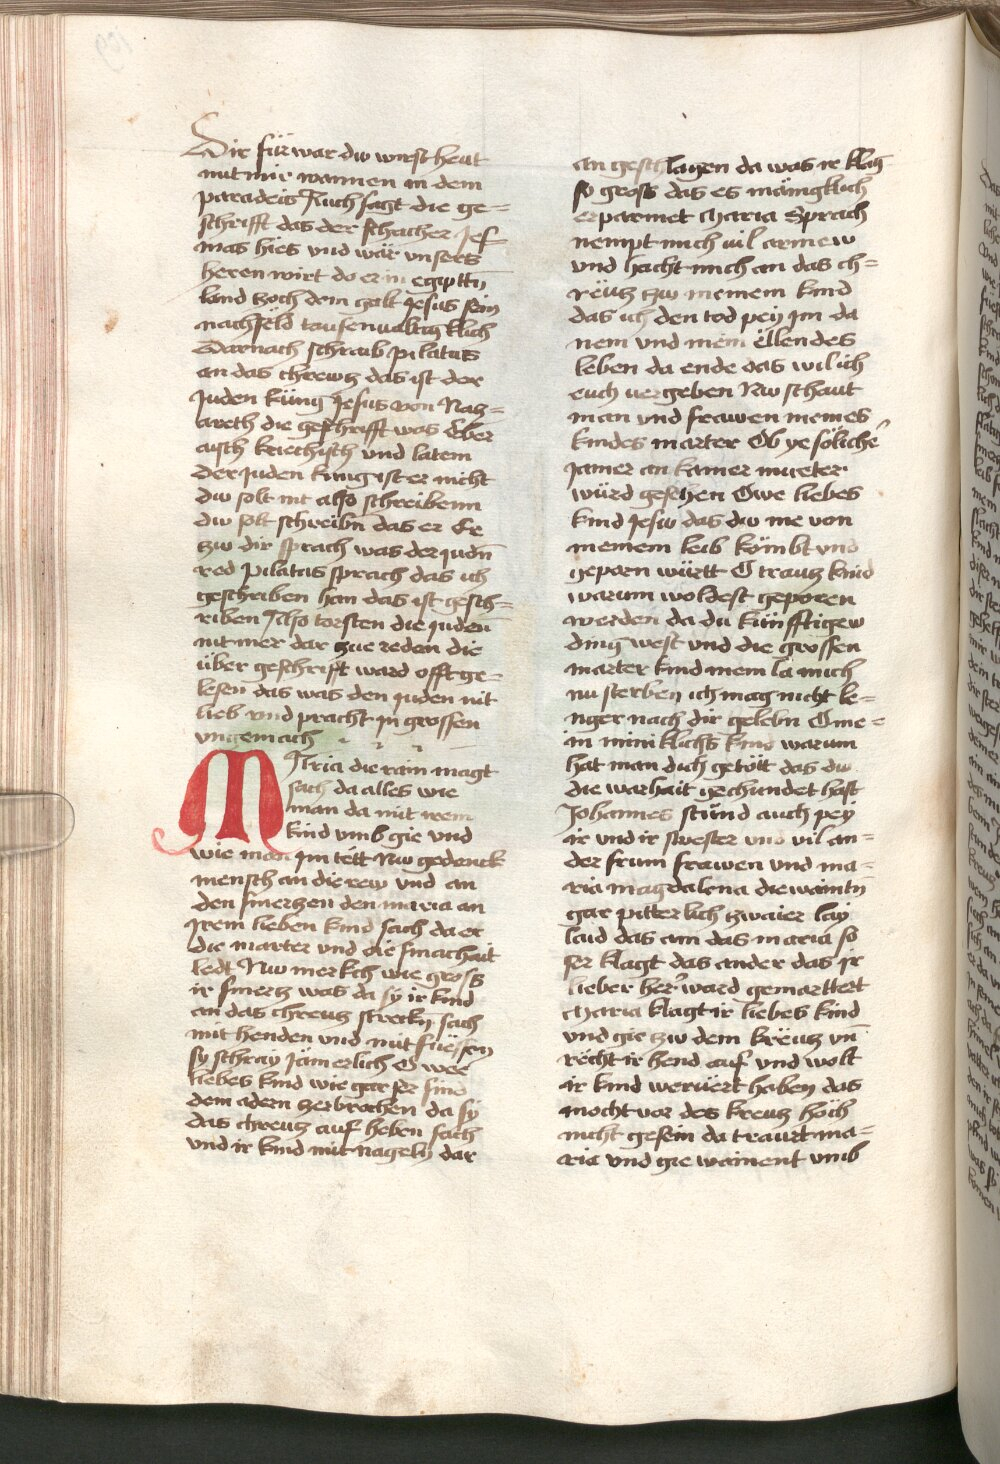 Dir fürwar du wirst heut
mit mir wannen in dem
paradeis Auch sagt die ge=
schrifft das der schacher Jes
mas hies vnd wär vnsers
heren wirt do er in egiptn̄
land zoch dem galt Jesus sein
nachseld tausenualtigklich
Darnach schraib pilatus
an das chrewtz das ist der
Juden küng Jesus von Naz=
areth die geschrifft was Ebr
aisch kriechisch vnd latein
Der Juden kung ist er nicht
du solt nit also schreibenn
du solt schreibn das er Ee
zw dir sprach was der judn̄
red pilatus sprach das ich
geschriben han das ist gesch=
riben Also torsten die juden
nit mer dar zue reden die
über geschrifft ward offt ge=
lesen das was den juden nit
lieb vnd pracht jn grossen
vngemach
MAria die rain magt
sach da alles wie
man da mit irem
kind vmb gie vnd
wie man jm tett Nw gedenck
mensch an die rew vnd an
den smertzen den maria an
Jrem lieben kind sach da er
die marter vnd die smachait
ledt Nw merkch wie gross
ir smertz was da sy ir kind
an das chreutz streckn̄ sach
mit henden vnd mit füessen
sy schray Jämerlich O wee
liebes kind wie gar ser sind
dein adern zerbrochen da sy
das chreutz auf heben sach
vnd ir kind mit nageln dar
an geschlagen da was ir klag
so gross das es mänigklich
erparmet Maria Sprach
nempt mich vil armew
vnd hacht mich an das ch=
rëutz zw meinem kind
das ich den tod pey jm da
nem vnd mein ëllendes
leben da ende das wil ich
euch vergeben Nw schaut
man vnd frawen meines
kindes marter Ob ye söliche
jamer an kainer mueter
würd gesehen Owe liebes
kind Jesu das du ie von
meinem leib kömbt vnd
geporn württ O trautz kind
warum woldest geporen
werden da du künfftigew
ding west vnd die grossen
marter kind mein la mich
nu sterben ich mag nicht le=
nger nach dir gelebn O me=
in miniklichs kind warum
hat man dich getött das du
die warhait gechundet hast
Johannes stünd auch pey
ir vnd ir swester vnd vil an=
der frum frawen vnd ma=
ria magdalena die waintn̄
gar pitterlich zwaier lay
laid das ain das maria so
ser klagt das ander das jr
lieber her ward gemarttert
Maria klagt ir liebes kind
vnd gie zw dem krëutz vn̄
rëcht ir hend auf vnd wolt
ir kind werüert haben das
mocht vor des kreutz höch
nicht gesein da traurt ma=
ria vnd gie wainent vmb